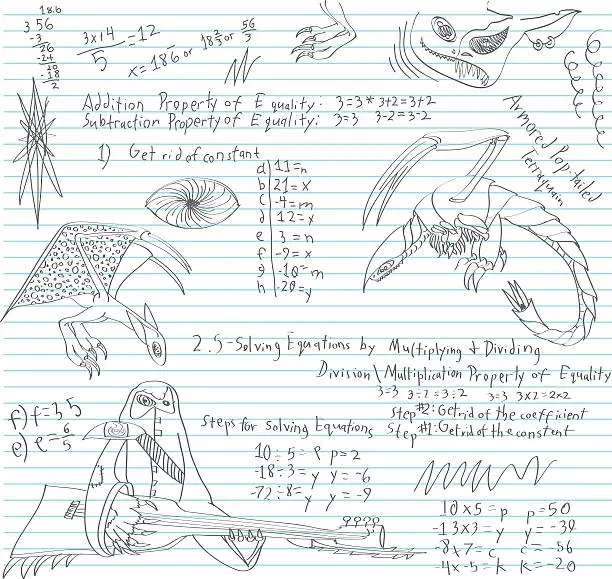 18.6
3 56
-3
26
-24
20
-18
2
3x+4 =12
5
x=18.6 or 18 2/3 or 56/3
Addition Property of Equality: 3=3* 3+2=3+2
Subtraction Property of Equality: 3=3 3-2=3-2
Armored Plop-tailed
Tetraquain
1) Get rid of constant
a 11=n
b 21=x
c -4=m
d 12=x
e 3=n
f -9=x
g -10=m
h -20=y
2.5-Solving Equations by Multiplying + Dividing
Division\Multiplication Property of Equality
3=3 3÷2=3÷2 3=3 3x2=2x2
Step #2: Get rid of the coefficient
Step #1: Get rid of the constant
f) f=35
e) e=6/5
Steps for solving Equations
10÷5=P p=2
-18÷3=y y=-6
-72÷8=y y=-9
10x5=p p=50
-13x3=y y=-39
-8x7=c c=-56
-4x-5=k k=-20